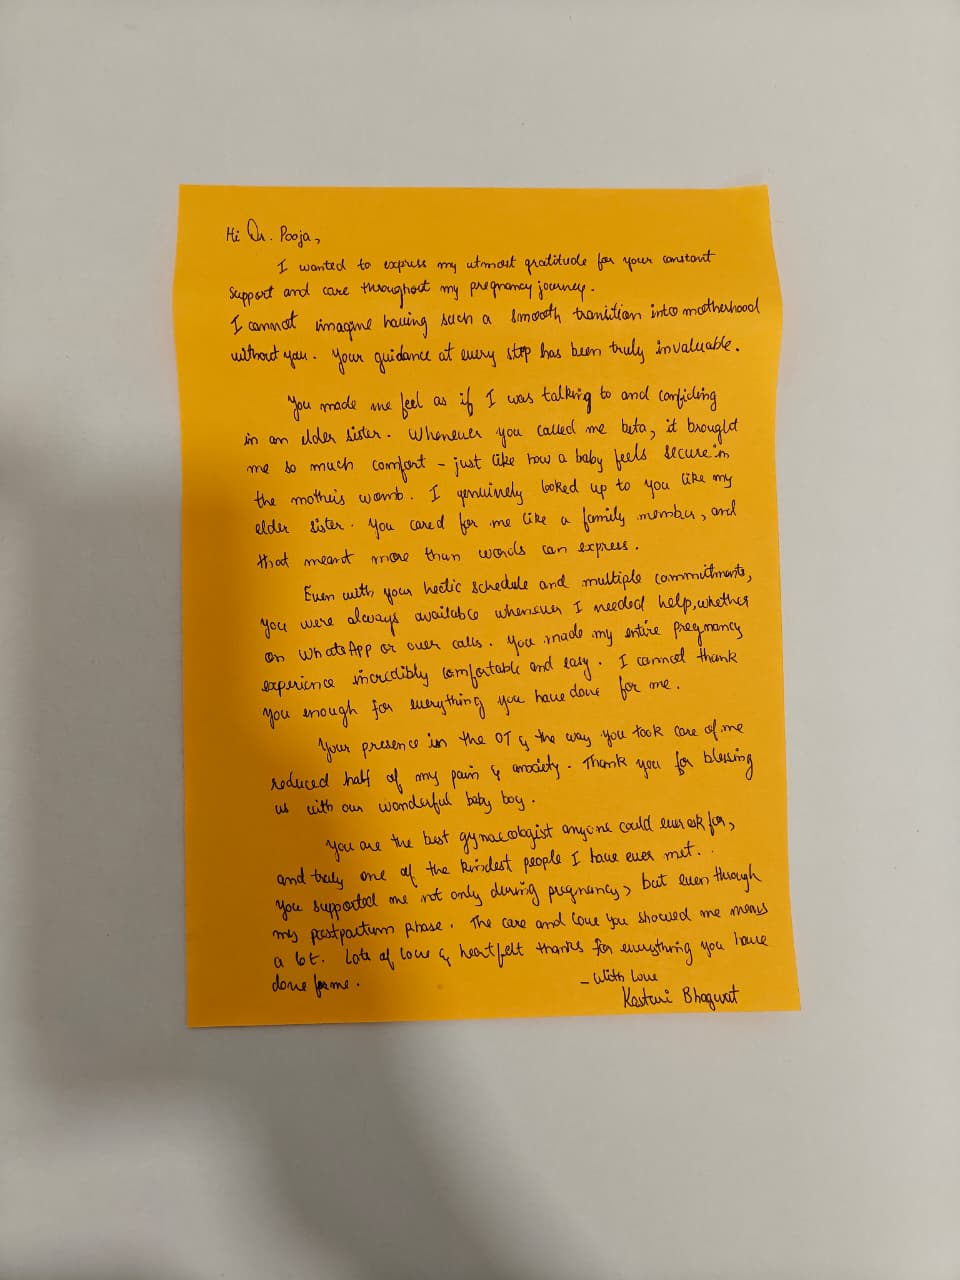 Hi Dr. Pooja,
I wanted to express my utmost gratitude for your constant
support and care throughout my pregnancy journey.
I cannot imagine having such a smooth transition into motherhood
without you. Your guidance at every step has been truly invaluable.
You made me feel as if I was talking to and confiding
in an elder sister. Whenever you called me beta, it brought
me so much comfort - just like how a baby feels secure in
the mother's womb. I genuinely looked up to you like my
elder sister. You cared for me like a family member, and
that meant more than words can express.
Even with your hectic schedule and multiple commitments,
you were always available whenever I needed help, whether
on WhatsApp or over calls. You made my entire pregnancy
experience incredibly comfortable and easy. I cannot thank
you enough for everything you have done for me.
Your presence in the OT & the way you took care of me
reduced half of my pain & anxiety. Thank you for blessing
us with our wonderful baby boy.
You are the best gynacologist anyone could ever ask for,
and truly one of the kindest people I have ever met.
You supported me not only during pregnancy, but even through
my postpartum phase. The care and love you showed me means
a lot. Lots of love & heartfelt thanks for everything you have
done for me.
- With love
Kasturi Bhagwat